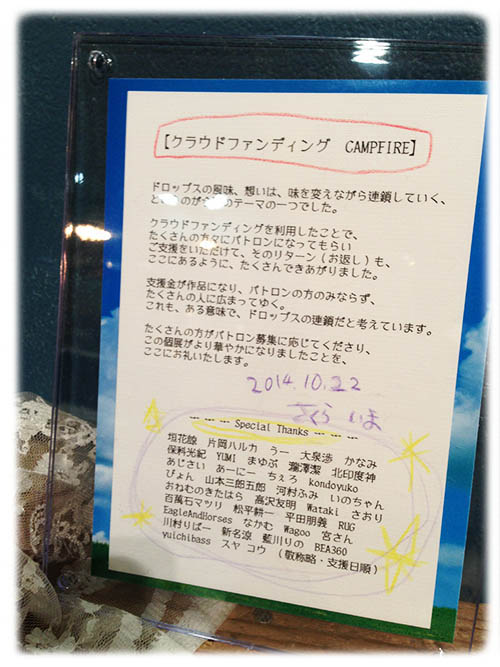 【クラウドファンディング CAMPFIRE】
ドロップスの風味、想いは、味を変えながら連鎖していく、
のテーマの一つでした。
クラウドファンディングを利用したことで、
たくさんの方々にパトロンになってもらい
ご支援をいただけて、そのリターン(お返し)も、
ここにあるように、たくさんできあがりました。
支援金が作品になり、パトロンの方のみならず、
たくさんの人に広まってゆく。
これも、ある意味で、ドロップスの連鎖だと考えています。
たくさんの方がパトロン募集に応じてくださり、
この個展がより華やかになりましたことを、
ここにお礼いたします。
2014.10.22
さくら いま
--- --- -- Special Thanks -- --- ---
垣花諒 片岡ハルカ うー 大泉渉 かなみ
保科光紀 YUMI まゆぷ 瀧澤潔 北印度神
あじさい あーにー ちぇろ kondoyuko
ぴょん 山本三郎五郎 河村ふみ いのちゃん
おねむのきたはら 高沢友明 Wataki さおり
百萬石マツリ 松平耕一 平田朋義 RUG
EagleAndHorses なかむ Wagoo 宮さん
川村りばー 新名涼 藍川りの BEA360
yuichibass スヤ コウ (敬称略・支援日順)